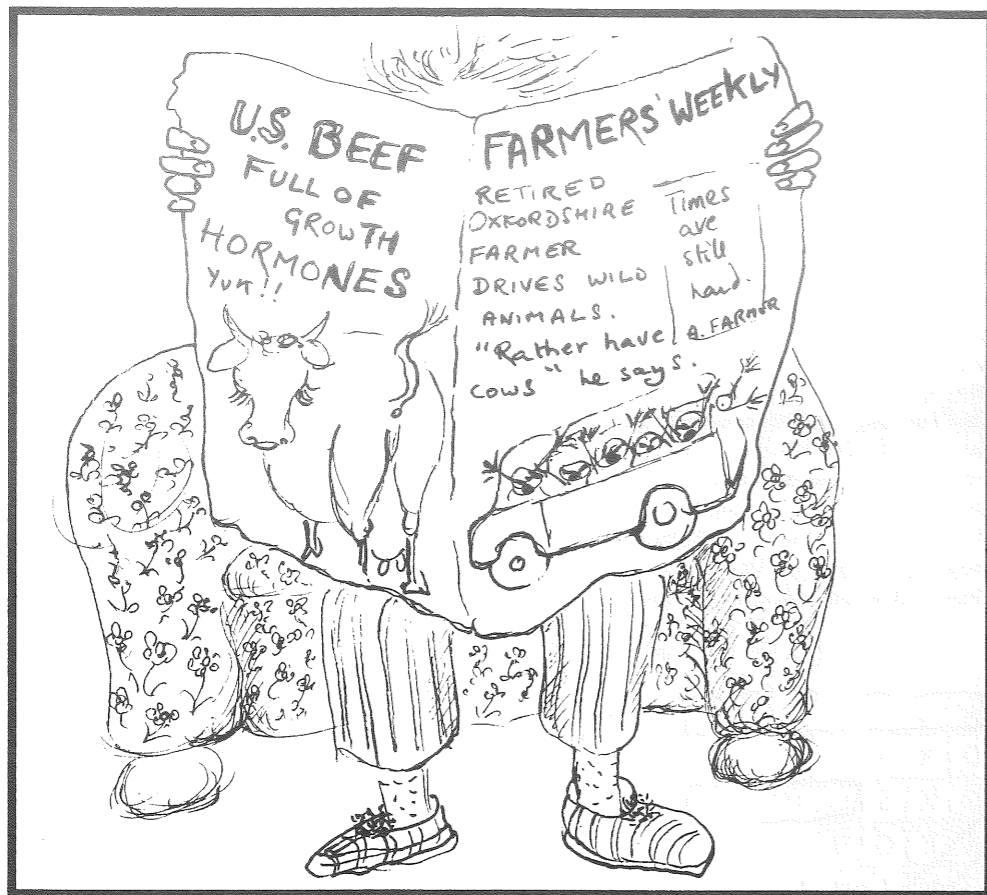 U.S. BEEF
FULL OF
GROWTH
HORMONES
YUK!!
FARMERS' WEEKLY
RETIRED
OXFORDSHIRE
FARMER
DRIVES WILD
ANIMALS.
"Rather have
cows" he says.
Times
are
still
hard.
A. FARMER